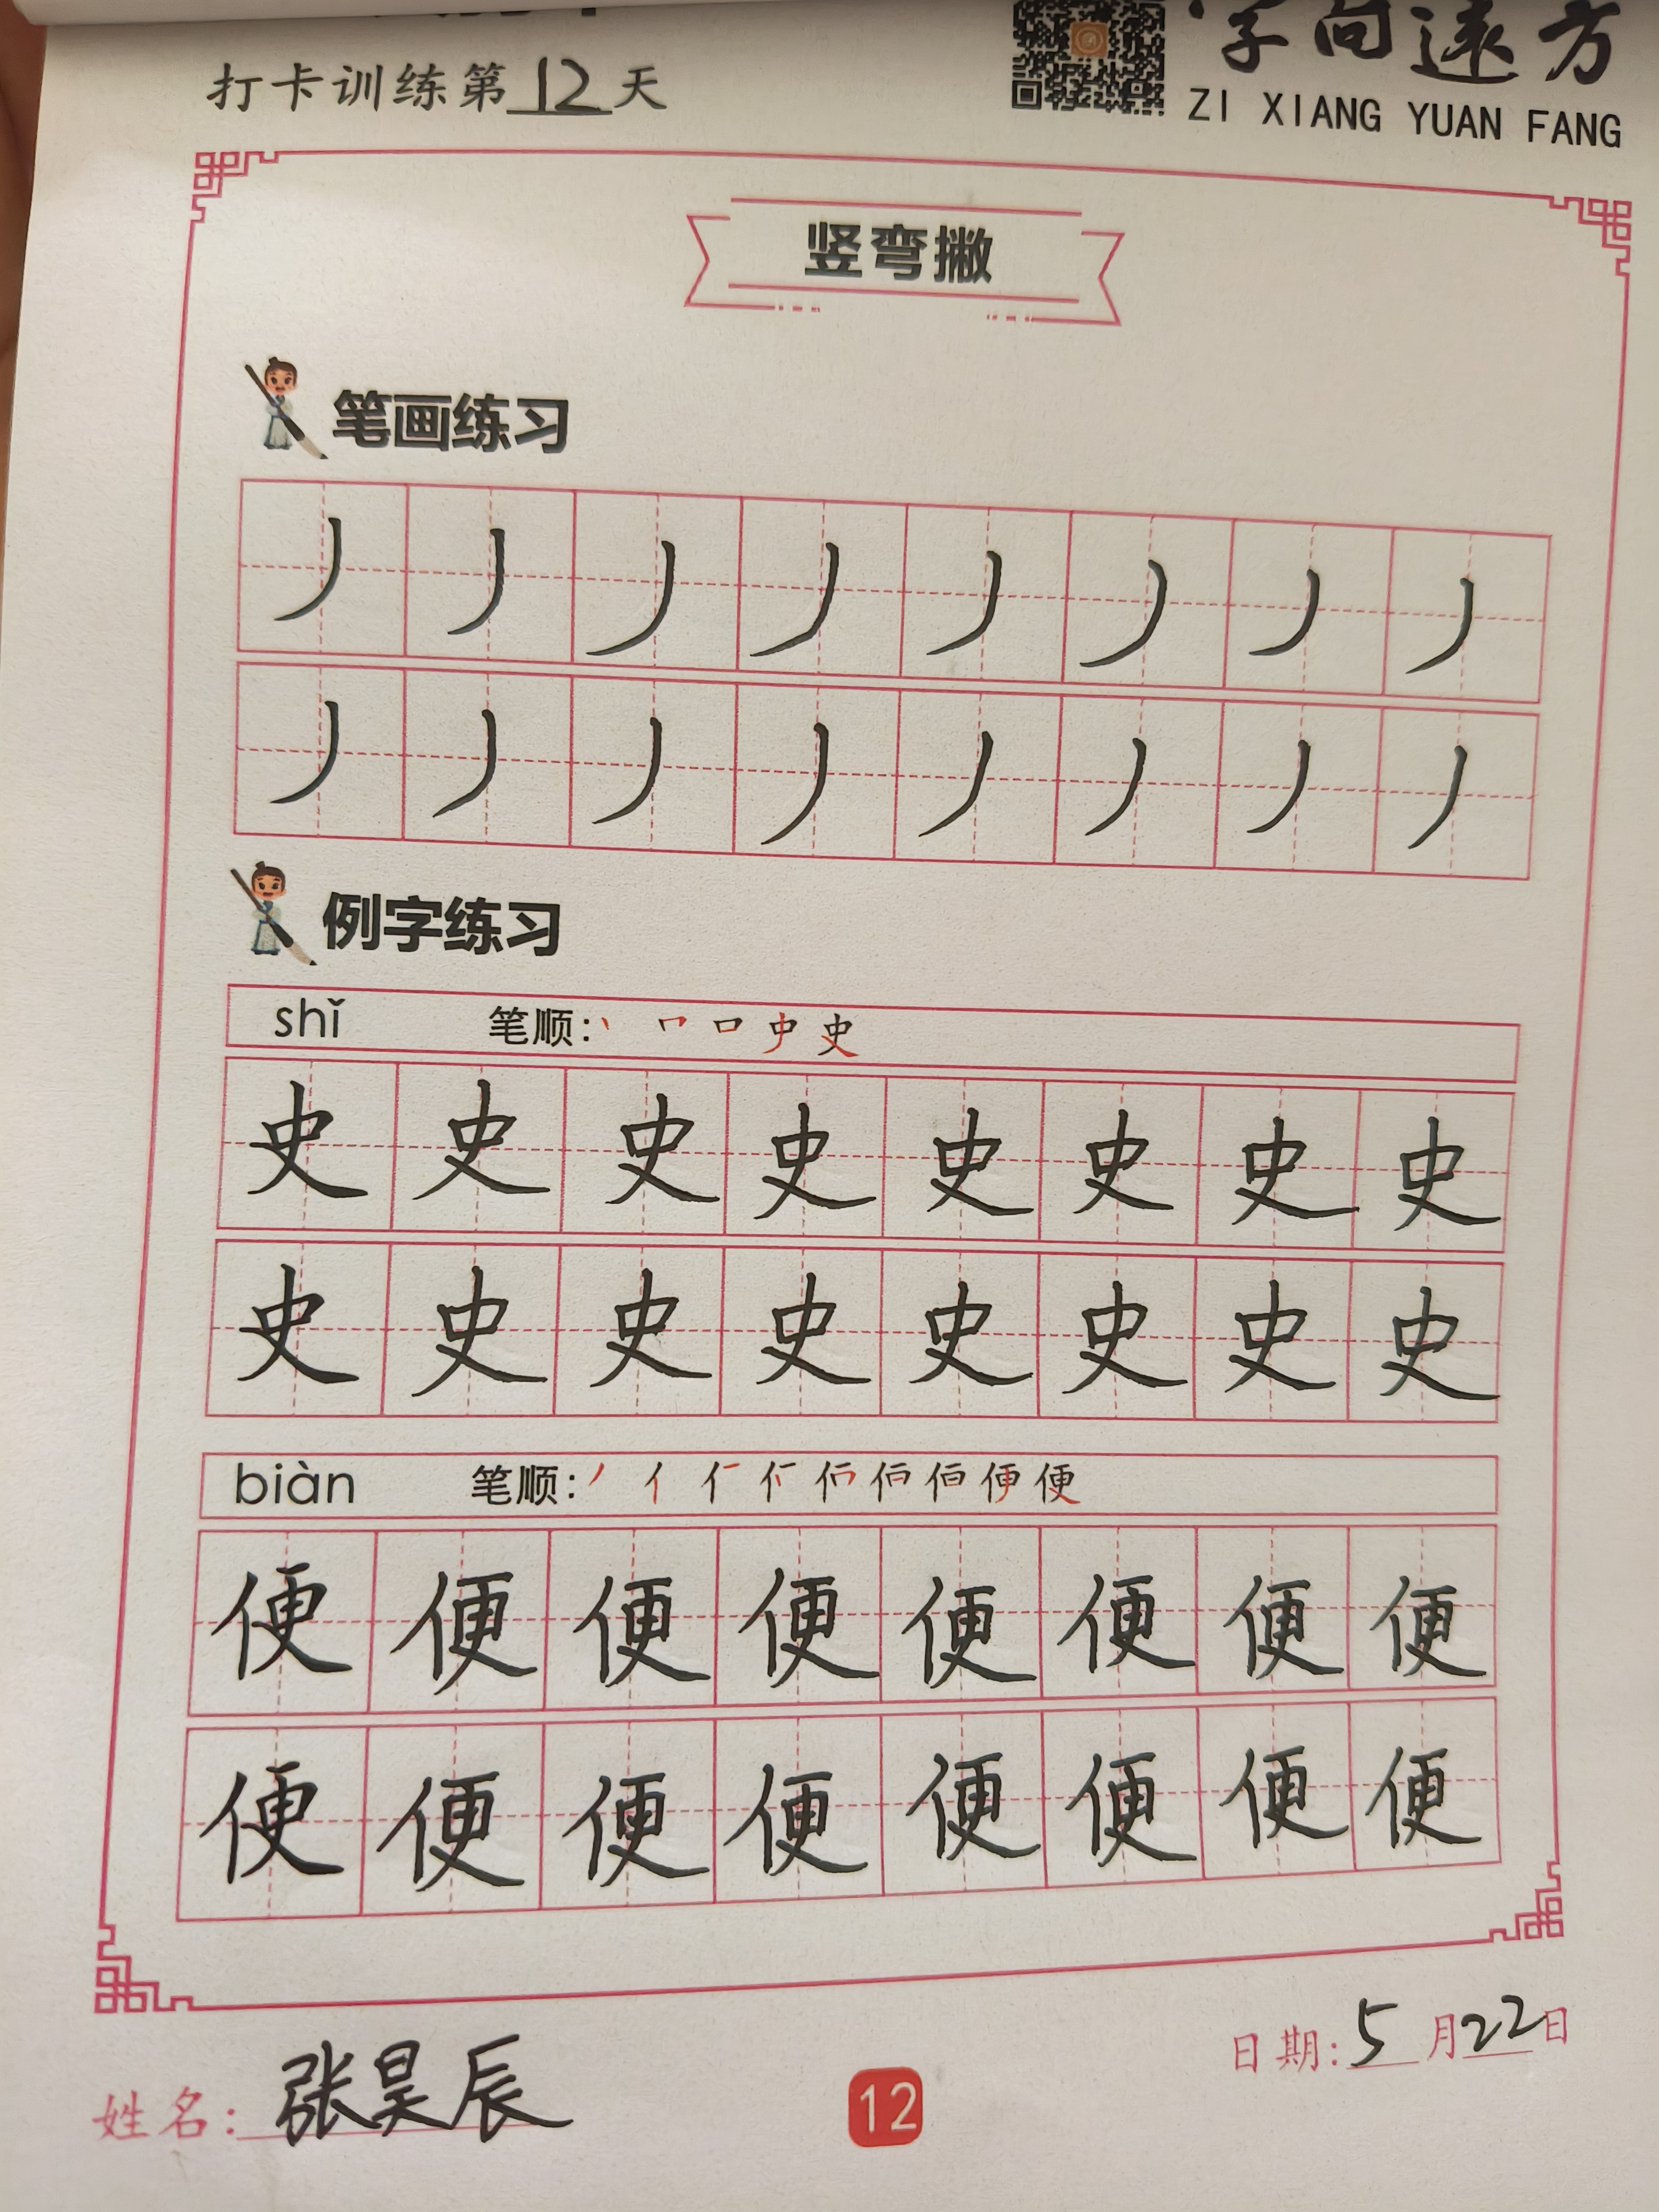 字向遠方
ZI XIANG YUAN FANG
打卡训练第12天
竖弯撇
笔画练习
丿 丿 丿 丿 丿 丿 丿 丿
丿 丿 丿 丿 丿 丿 丿 丿
例字练习
shǐ 笔顺:丨 𠃍 口 史 史
史 史 史 史 史 史 史 史
史 史 史 史 史 史 史 史
biàn 笔顺:
便 便 便 便 便 便 便 便
便 便 便 便 便 便 便 便
日期:5月22日
姓名:张昊辰
12